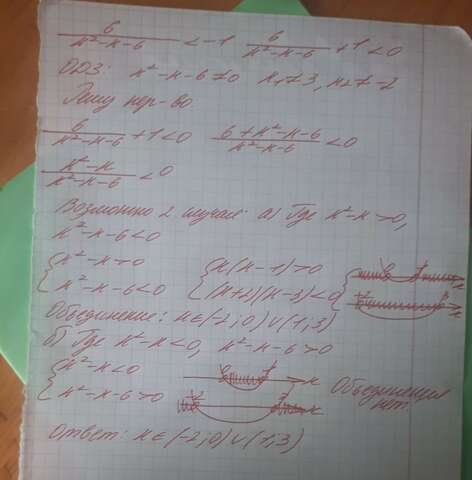 6/(x²-x-6) < -1   6/(x²-x-6) + 1 < 0
ОДЗ: x²-x-6≠0   x₁≠3, x₂≠-2
Решу нер-во
6/(x²-x-6) + 1 < 0   (6+x²-x-6)/(x²-x-6) < 0
(x²-x)/(x²-x-6) < 0
Возможно 2 случая: а) Где x²-x>0,
x²-x-6<0
{ x²-x>0   { x(x-1)>0   0 1 x
{ x²-x-6<0   { (x+2)(x-3)<0   -2 3 x
Объединение: x∈(-2;0)∪(1;3)
б) Где x²-x<0, x²-x-6>0
{ x²-x<0   0 1 x   Объединения
{ x²-x-6>0   -2 3 x   нет.
Ответ: x∈(-2;0)∪(1;3)